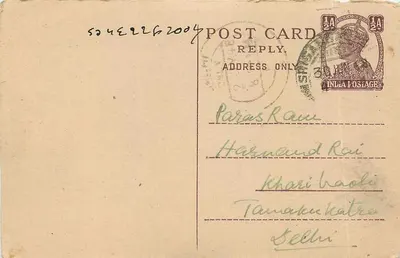 ½A ½A
POST CARD
REPLY.
ADDRESS ONLY
INDIA POSTAGE
Paras Ram
Harnand Rai
Kharibaoli
Tamaku Katra
Delhi